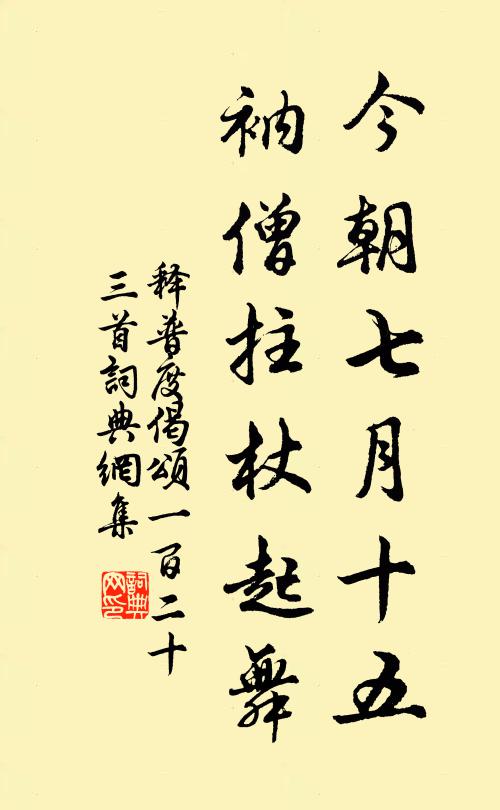 今朝七月十五
衲僧拄杖起舞
释普度偈頌一百二十
三首詞典網集
詞典网印